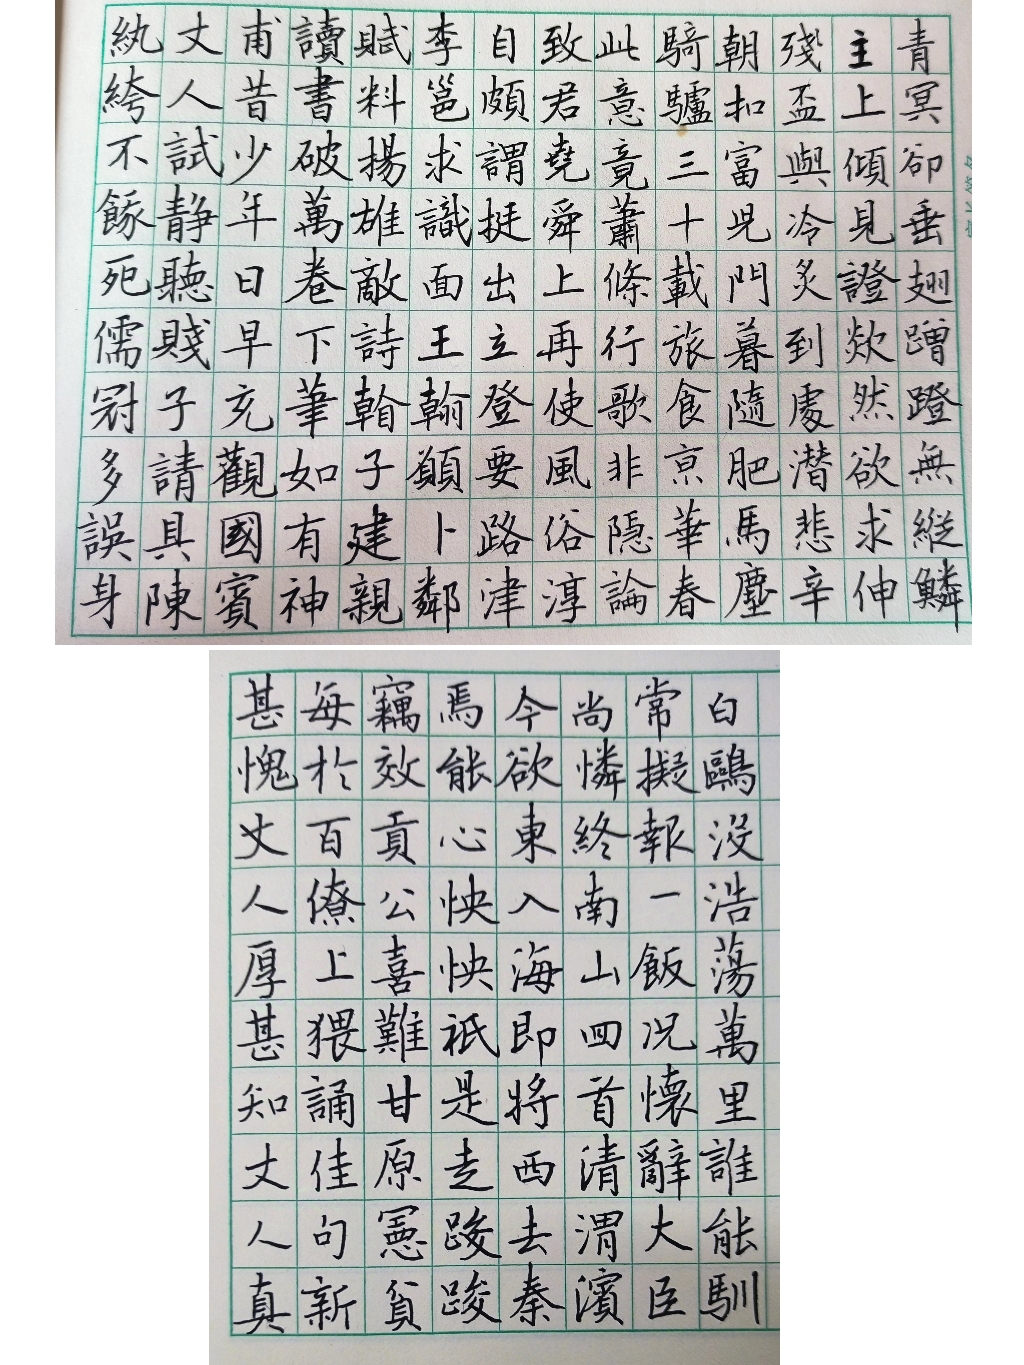 紈絝不餓死儒冠多誤身
丈人試静聽賤子請具陳
甫昔少年日早充觀國賓
讀書破萬卷下筆如有神
賦料揚雄敵詩看子建親
李邕求識面王翰願卜鄰
自頗謂挺出立登要路津
致君堯舜上再使風俗淳
此意竟蕭條行歌非隱論
騎驢三十載旅食京華春
朝扣富兒門暮隨肥馬塵
殘盃與冷炙到處潛悲辛
主上傾見證欻然欲求伸
青冥卻垂翅蹭蹬無縱鱗
甚愧丈人厚甚知丈人真
每於百僚上猥誦佳句新
竊效貢公喜難甘原憲貧
焉能心怏怏祗是走踆踆
今欲東入海即將西去秦
尚憐終南山回首清渭濱
常擬報一飯况懷辭大臣
白鷗没浩蕩萬里誰能馴